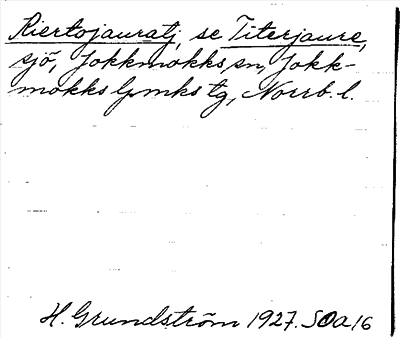 Riertojauratj, se Titerjaure,
sjö, Jokkmokks sn, Jokk-
mokks lpmks tg, Norrb. l.
H. Grundström 1927. SOa16